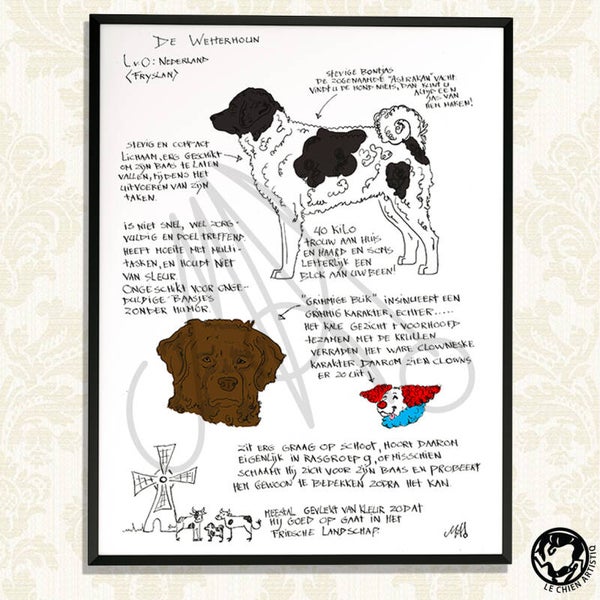 De Wetterhoun
LvO: Nederland
(Fryslan)
Stevige bontjas
de zogenaamde "Astrakan" vacht
vindt u de hond niets, dan kunt u
altijd een
jas van
hem maken!
Stevig en compact
lichaam, erg geschikt
om zijn baas te laten
vallen, tijdens het
uitvoeren van zijn
taken.
Is niet snel, wel zorg-
vuldig en doeltreffend.
Heeft moeite met multi-
tasken, en houdt niet
van sleur.
Ongeschikt voor onge-
duldige baasjes
zonder humor.
40 kilo
trouw aan huis
en haard en soms
letterlijk een
blok aan uw been!
"Grimmige blik" insinueert een
grimmig karakter, echter.....
het kale gezicht + voorhoofd
tezamen met de krullen
verraden het ware clowneske
karakter. Daarom zien clowns
er zo uit
Zit erg graag op schoot, hoort daarom
eigenlijk in rasgroep 9, of misschien
schaamt hij zich voor zijn baas en probeert
hem gewoon te bedekken zodra het kan.
Meestal gevlekt van kleur zodat
hij goed op gaat in het
Friesche landschap.
LE CHIEN ARTISTIQ